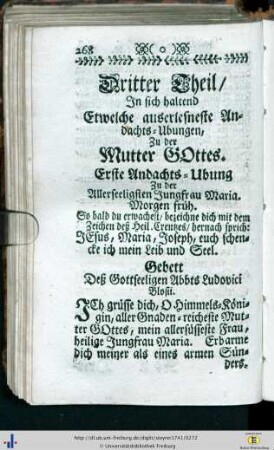 268 ( o )
Dritter Theil/
In sich haltend
Etwelche auserlesneste An-
dachts-Ubungen,
Zu der
Mutter GOttes.
Erste Andachts-Ubung
Zu der
Allerseeligsten Jungfrau Maria.
Morgen früh.
So bald du erwachest, bezeichne dich mit dem
Zeichen deß Heil. Creutzes, hernach sprich:
JEsus, Maria, Joseph, euch schen-
cke ich mein Leib und Seel.
Gebett
Deß Gottseeligen Abbts Ludovici
Blosii.
JCh grüsse dich, O Himmels-Köni-
gin, aller Gnaden-reicheste Mut-
ter GOttes, mein allersüsseste Frau,
heilige Jungfrau Maria. Erbarme
dich meiner als eines armen Sün-
ders.
http://dl.ub.uni-freiburg.de/diglit/steyrer1741/0272
© Universitätsbibliothek Freiburg